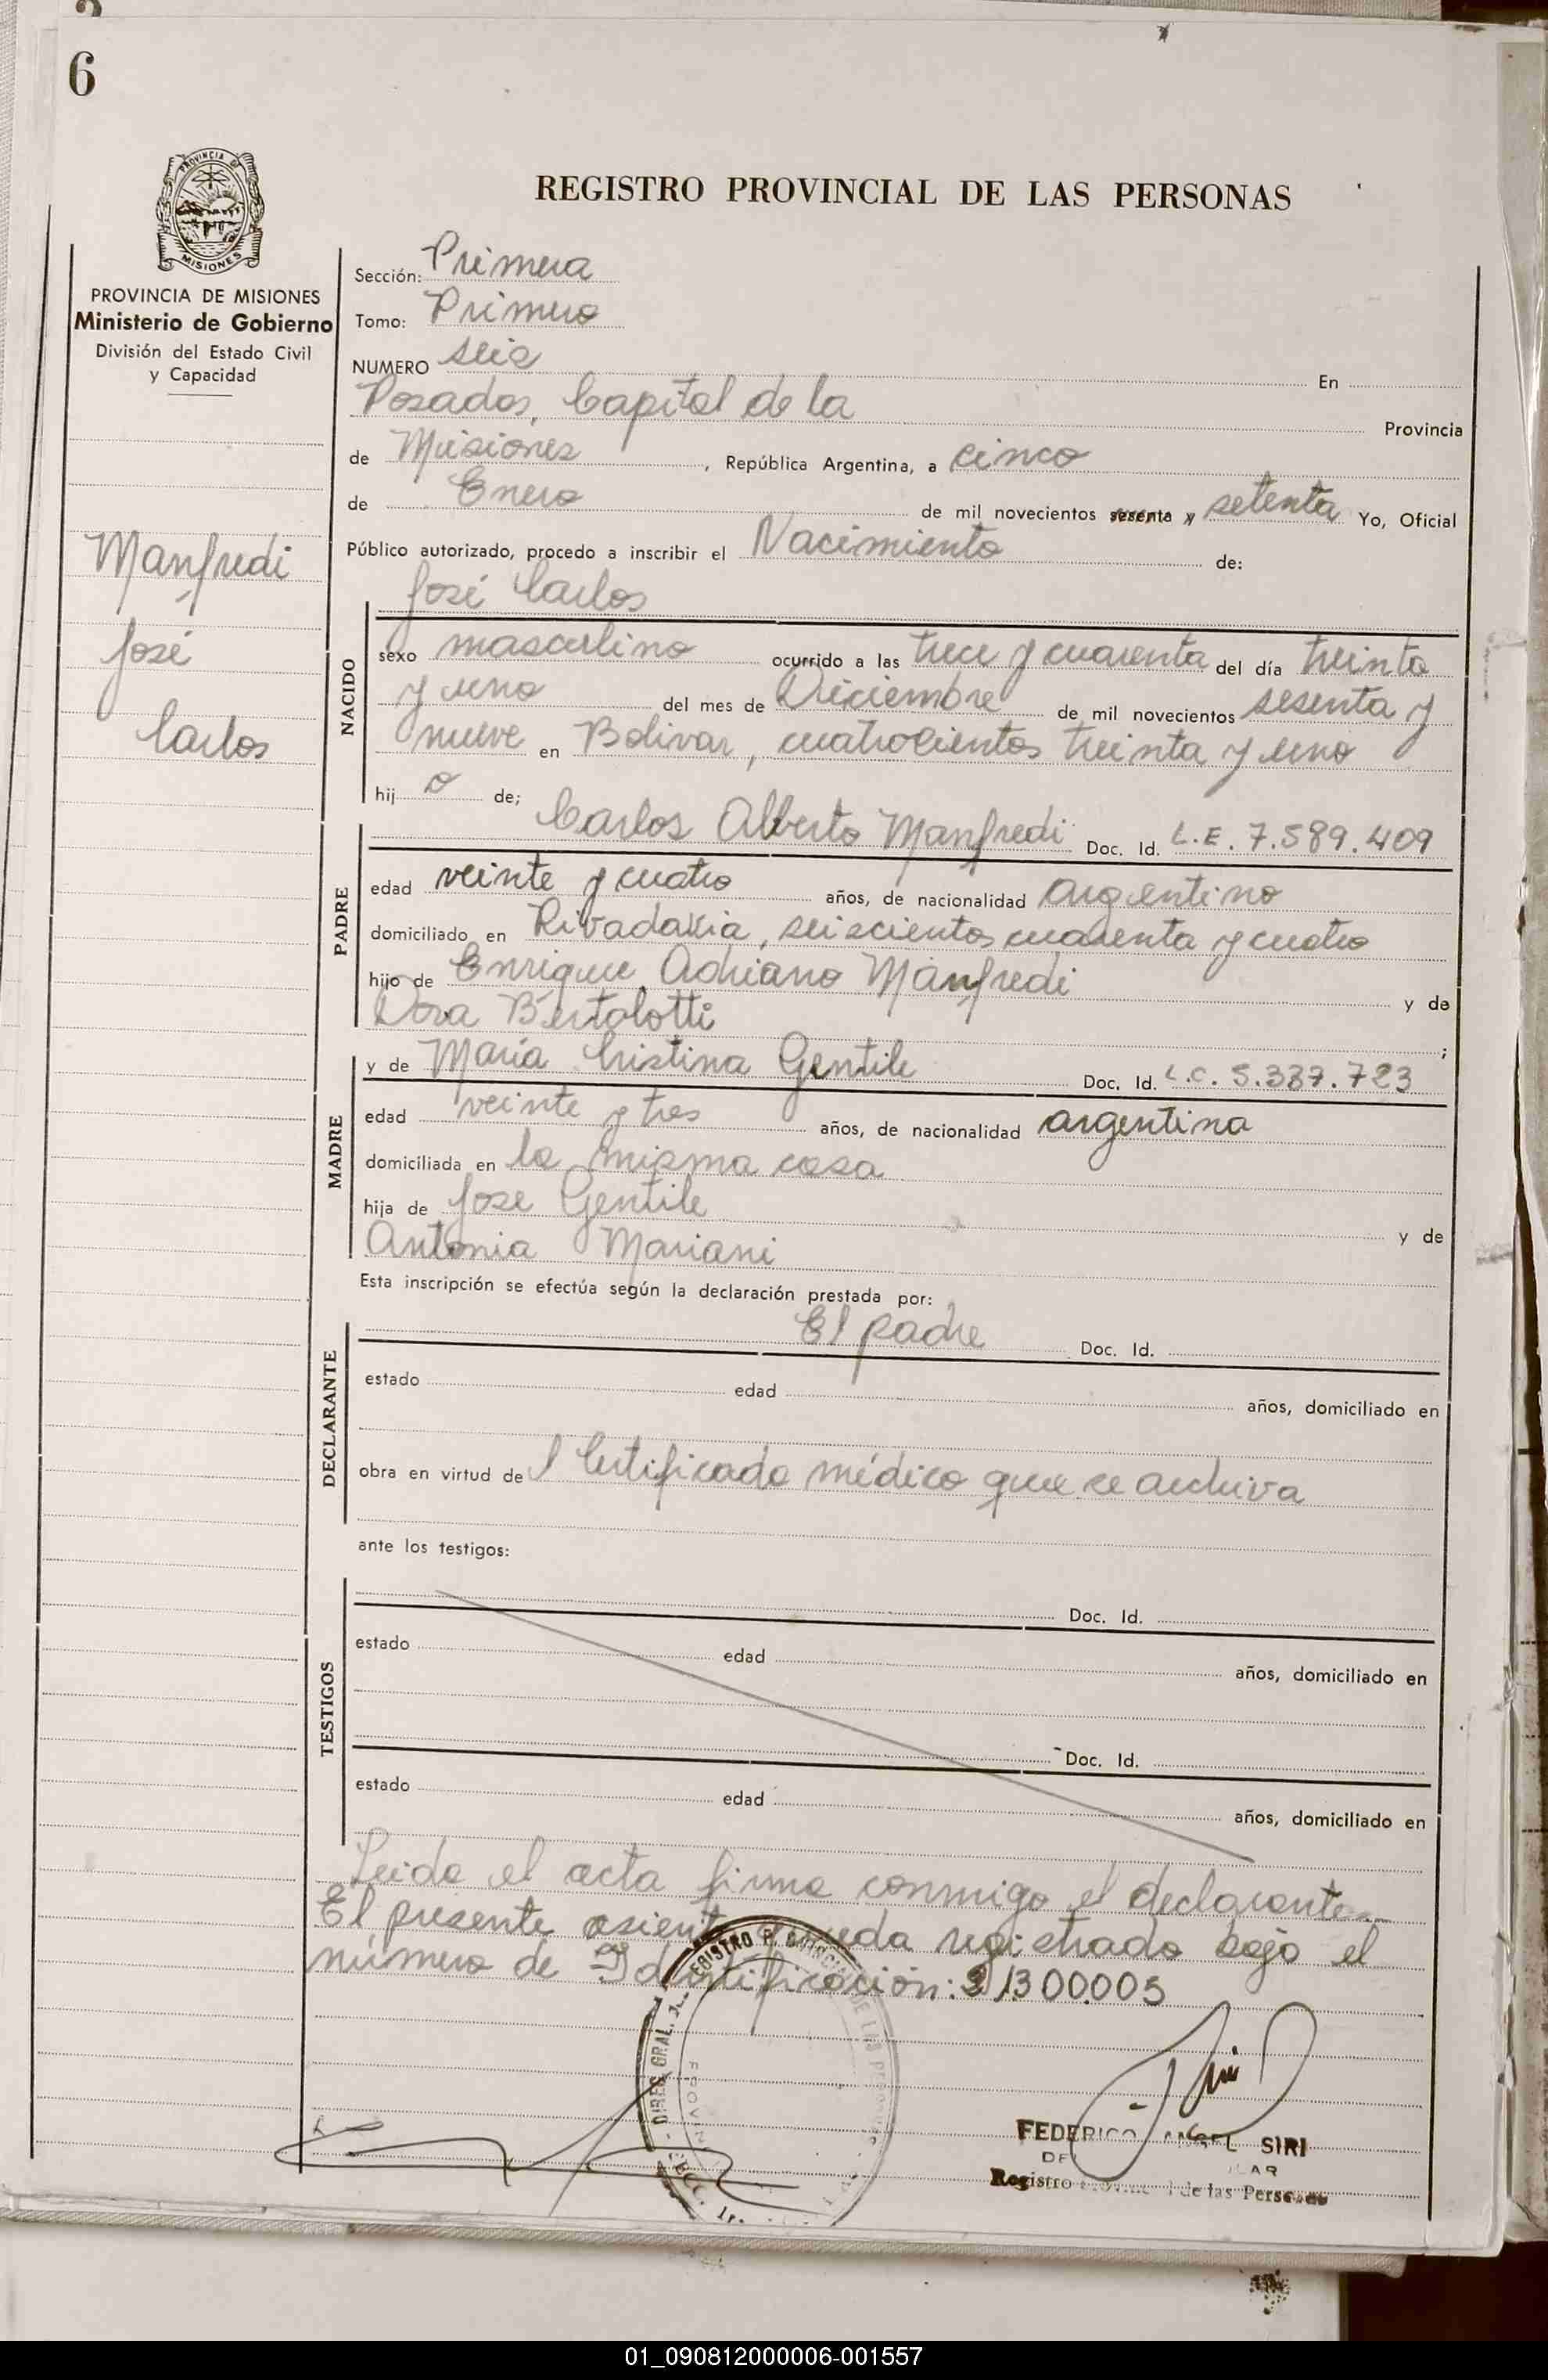 6
PROVINCIA DE
MISIONES
REGISTRO PROVINCIAL DE LAS PERSONAS
PROVINCIA DE MISIONES
Ministerio de Gobierno
División del Estado Civil
y Capacidad
Manfredi
José
Carlos
Sección: Primera
Tomo: Primero
NUMERO seis En
Posadas, Capital de la Provincia
de Misiones, República Argentina, a cinco
de Enero de mil novecientos sesenta y setenta Yo, Oficial
Público autorizado, procedo a inscribir el Nacimiento de:
José Carlos
NACIDO
sexo masculino ocurrido a las trece y cuarenta del día treinta
y uno del mes de Diciembre de mil novecientos sesenta y
nueve en Bolivar, cuatrocientos treinta y uno
hij o de;
Carlos Alberto Manfredi Doc. Id. L.E. 7.589.409
PADRE
edad veinte y cuatro años, de nacionalidad argentino
domiciliado en Rivadavia, seiscientos cuarenta y cuatro
hijo de Enrique Adriano Manfredi y de
Dora Bertolotti ;
y de María Cristina Gentile Doc. Id. L.C. 5.337.723
MADRE
edad veinte y tres años, de nacionalidad argentina
domiciliada en la misma casa
hija de Jose Gentile y de
Antonia Mariani
Esta inscripción se efectúa según la declaración prestada por:
El padre Doc. Id.
DECLARANTE
estado edad años, domiciliado en
obra en virtud de l Certificado médico que se archiva
ante los testigos:
Doc. Id.
TESTIGOS
estado edad años, domiciliado en
Doc. Id.
estado edad años, domiciliado en
Leida el acta firma conmigo el declarante
El presente asiento queda registrado bajo el
número de Identificación: 21300005
FEDERICO ANGEL SIRI
Registro de las Personas
01_090812000006-001557